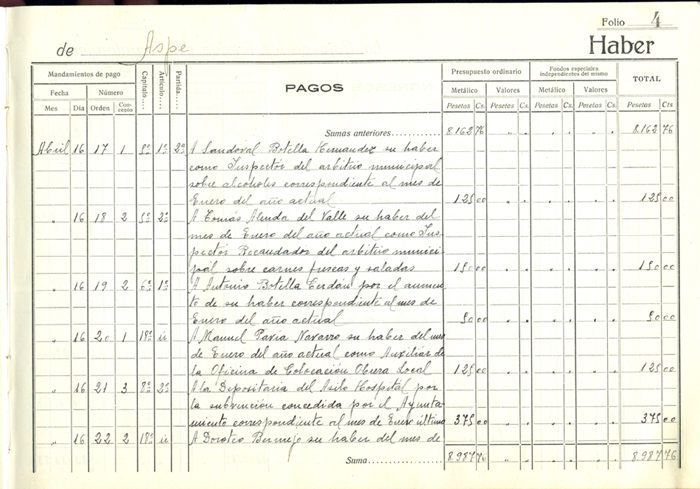 Folio 4
de Aspe
Haber
Mandamientos de pago
Capítulo
Artículo
Partida
PAGOS
Presupuesto ordinario
Fondos especiales
independientes del mismo
TOTAL
Fecha Número
Metálico Valores Metálico Valores
Mes Día Orden
Pesetas Cs. Pesetas Cs. Pesetas Cs. Pesetas Cs. Pesetas Cts
Sumas anteriores 8.162 76 " " " " " " 8.162 76
Abril 16 17 1 5º 1º 2º A Sandoval Botella Hernandez su haber
como Inspector del arbitrio municipal
sobre alcoholes correspondiente al mes de
Enero del año actual 125 00 " " " " " " 125 00
" 16 18 2 5º 2º A Tomás Alenda del Valle su haber del
mes de Enero del año actual como Ins-
pector Recaudador del arbitrio munici-
pal sobre carnes frescas y saladas 150 00 " " " " " " 150 00
" 16 19 2 6º 1º A Antonio Botella Cerdán por el aumen
to de su haber correspondiente al mes de
Enero del año actual 50 00 " " " " " " 50 00
" 16 20 1 18º A Manuel Pavia Navarro su haber del mes
de Enero del año actual como Auxiliar de
la Oficina de Colocación Obrera Local 125 00 " " " " " " 125 00
" 16 21 3 8º 2º A la Depositaria del Asilo Hospital por
la subvención concedida por el Ayunta-
miento correspondiente al mes de Enero último 375 00 " " " " " " 375 00
" 16 22 2 18º A Doroteo Bermejo su haber del mes de
Suma 8.987 76 " " " " " " 8.987 76